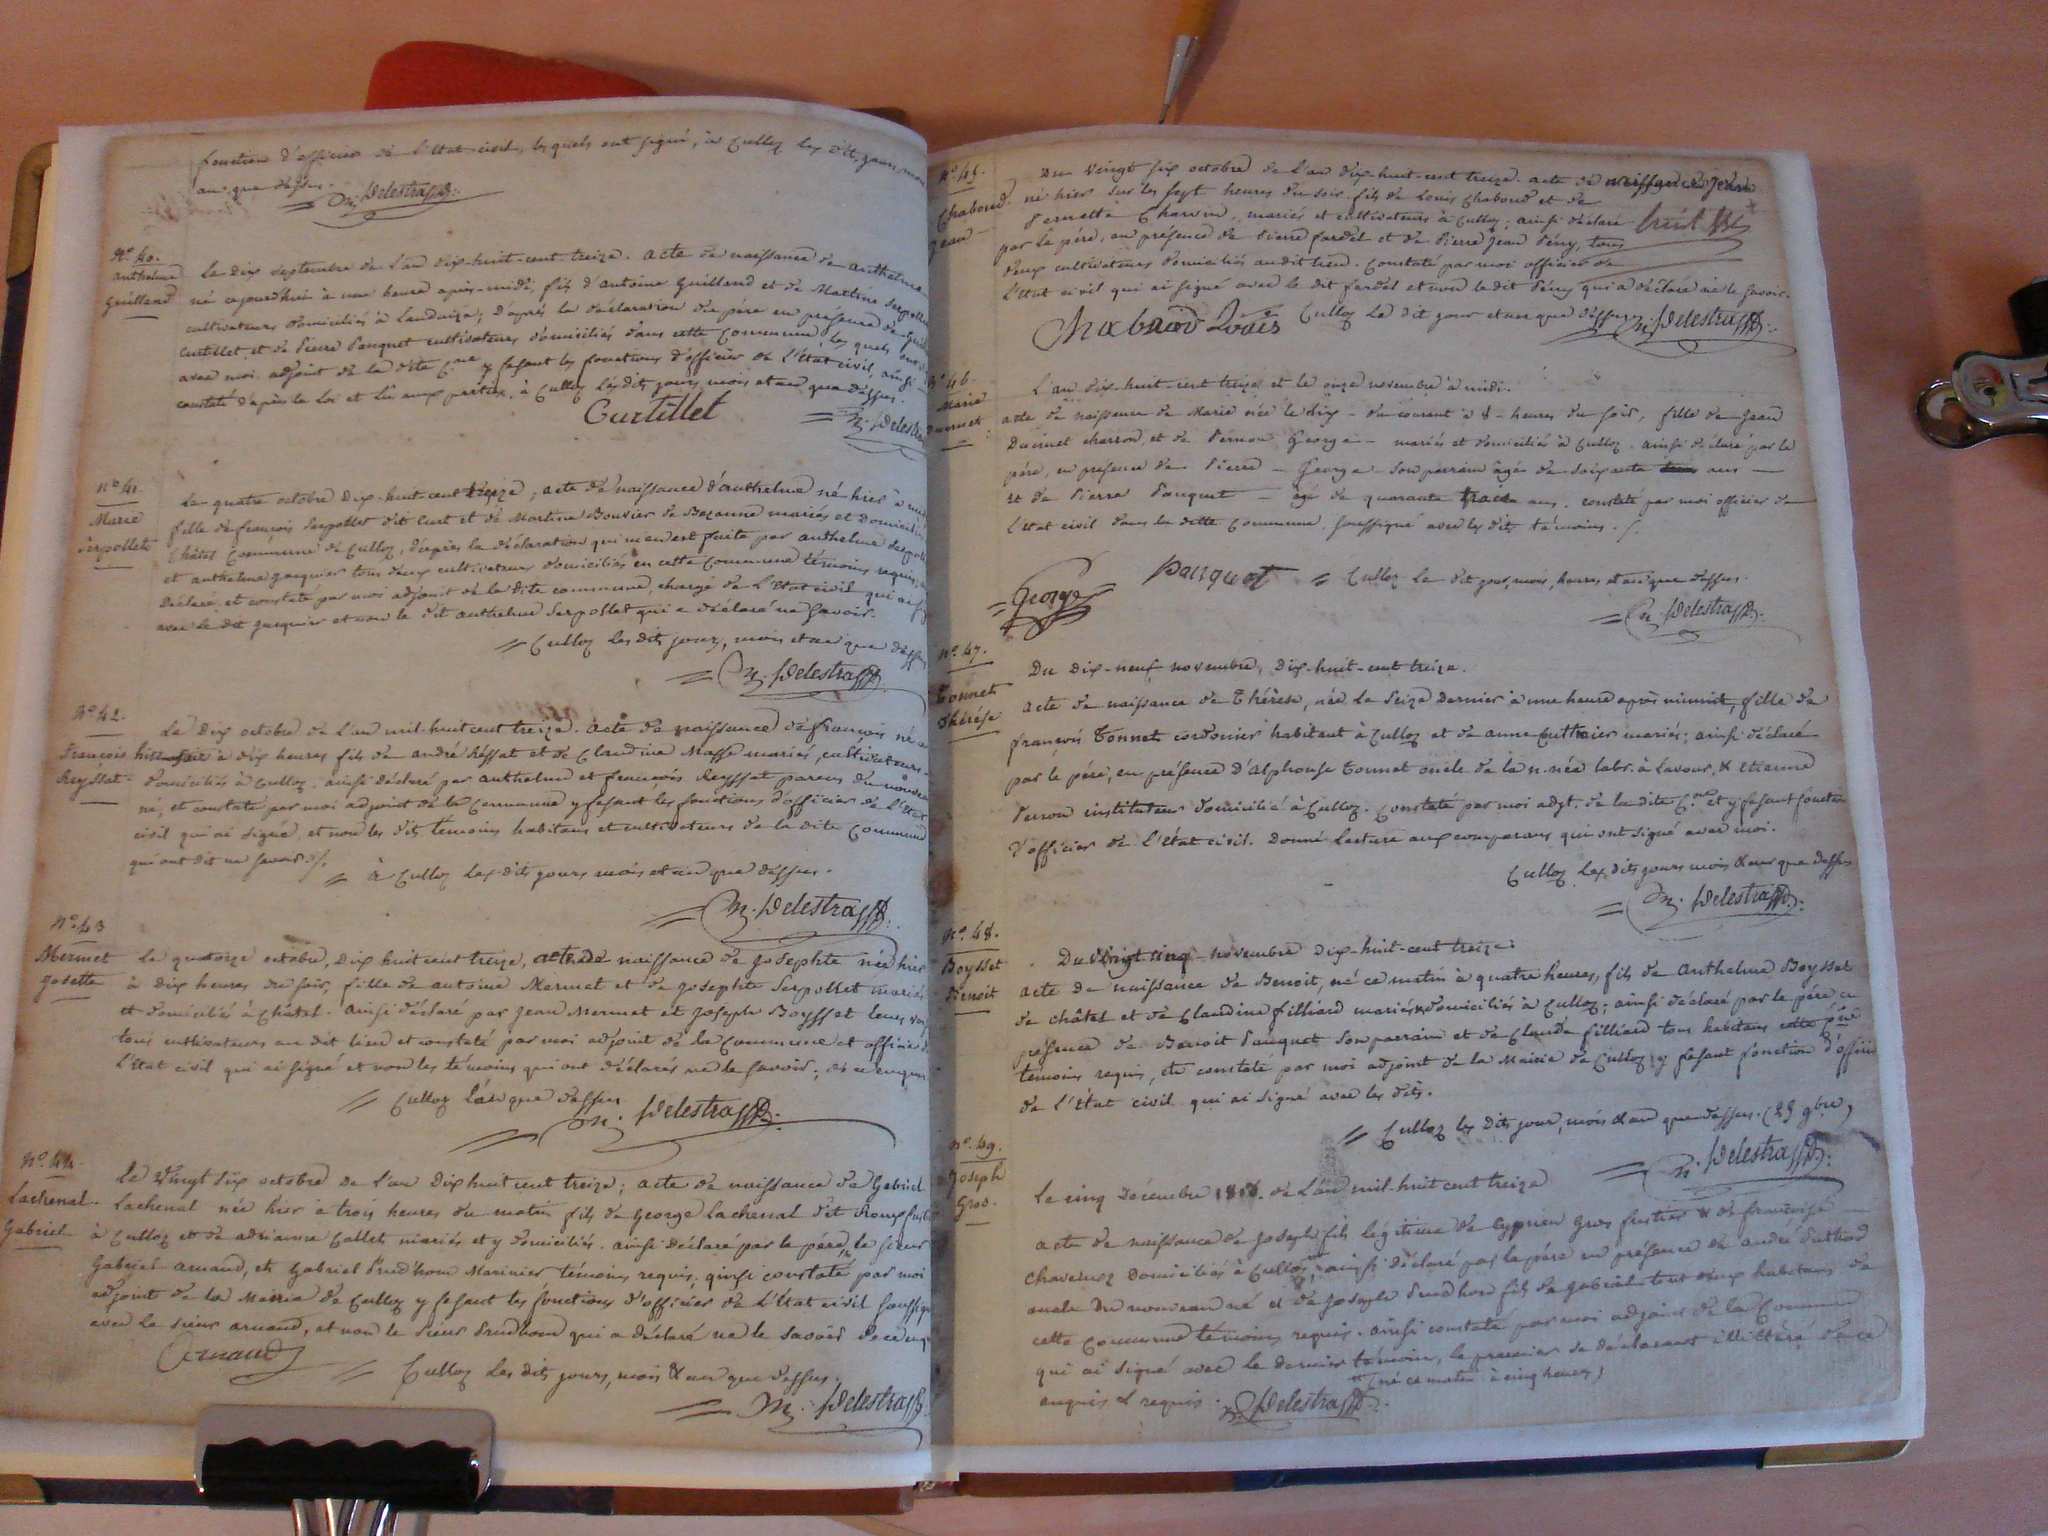 fonction d'officier de l'Etat civil, lesquels ont signé, à Culloz les dits jours, mois
an que dessus.
M. Delestra
N° 40.
anthelme
Guilland
Le dix septembre de l'an dix-huit-cent treize. acte de naissance de anthelme
né cejourd'hui à une heure après-midi, fils d'antoine Guilland et de Martine Serpollet
cultivateurs domiciliés à Landaize, d'après la déclaration du père en presence de
Curtillet et de Pierre Pauquet cultivateurs domiciliés dans cette Commune, les quels ont
avec moi adjoint de la dite C.ne y fesant les fonctions d'officier de l'Etat civil, ainsi
constaté d'après la Loi et Lu aux parties, à Culloz les dits jours, mois et an que dessus.
Curtillet
M. Delestra
N° 41.
Marie
Serpollet
Le quatre octobre dix-huit-cent treize, acte de naissance d'anthelme né hier à
fille de françois Serpollet dit Curt et de Martine Bouvier de Bezanne mariés et domiciliés
Châtel Commune de Culloz, d'après la déclaration qui m'en est faite par anthelme Serpollet
et anthelme Jacquier tous deux cultivateurs domiciliés en cette Commune témoins requis,
Déclaré, et constaté par moi adjoint de la dite commune, chargé de l'Etat civil qui ai
avec le dit Jacquier et non le dit anthelme Serpollet qui a déclaré ne savoir.
Culloz les dits jours, mois et an que dessus
M. Delestra
N° 42.
François
Reyssat
Le dix octobre de l'an mil-huit cent treize. acte de naissance de françois né
hier à dix heures fils de andré Réssat et de Claudine Masse mariés, cultivateurs
domiciliés à Culloz. ainsi déclaré par anthelme et francois Reyssat parens du nouveau
né, et constaté par moi adjoint de la Commune y fesant les fonctions d'officier de l'Etat
civil qui ai signé, et non les dits témoins habitans et cultivateurs de la dite Commune
qui ont dit ne savoir./.
à Culloz les dits jours mois et an que dessus.
M. Delestra
N° 43
Mermet
Josette
Le quatorze octobre, dix huit cent treize, acte de naissance de Josephte née hier
à dix heures du soir, fille de antoine Mermet et de Josephte Serpollet mariés
et domiciliés à Châtel. ainsi déclaré par Jean Mermet et Joseph Boysset
tous cultivateurs au dit lieu et constaté par moi adjoint de la Commune et officier
L'Etat civil qui ai signé et non les témoins qui ont déclarés ne le savoir; de ce enquis
Culloz l'an que dessus
M. Delestra
N° 44.
Lachenal
Gabriel
Le vingt six octobre de l'an dix huit cent treize; acte de naissance de Gabriel
Lachenal née hier à trois heures du matin fils de George Lachenal dit
à Culloz et de adrianne Callet mariés et y domiciliés. ainsi déclaré par le père, le sieur
Gabriel arnaud, et Gabriel Prud'hom Marinier témoins requis; ainsi constaté par moi
adjoint de la Mairie de Culloz y fesant les fonctions d'officier de l'Etat civil soussigné
avec le sieur arnaud, et non le sieur Prudhom qui a déclaré ne le savoir de ce
Arnaud
Culloz les dits jours, mois & an que dessus.
M. Delestra
N° 45.
Chaboud
Jean
Du vingt six octobre de l'an dix-huit-cent treize. acte de naissance de Jean
né hier sur les sept heures du soir fils de Louis Chaboud et de
Pernette Charvin, mariés et cultivateurs à Culloz; ainsi déclaré
par le père, en présence de Pierre fardel et de Pierre Jean Péry, tous
deux cultivateurs domiciliés au dit lieu. Constaté par moi officier de
L'Etat civil qui ai signé avec le dit fardel et non le dit Péry qui a déclaré ne le savoir.
Culloz le dit jour et an que dessus
Chaboud Louis
M. Delestra
N° 46.
Marie
Ducruet
L'an dix-huit-cent treize et le onze novembre à midi.
acte de naissance de Marie née le dix du courant à 8 heures du soir, fille de Jean
Ducruet charron, et de Pernon George mariés et domiciliés à Culloz. ainsi déclaré par le
père, en presence de Pierre George son parrain agé de soixante ans
et de Pierre Pauquet agé de quarante ans. constaté par moi officier de
l'Etat civil dans la dite Commune, soussigné avec les dits témoins./.
George
Pauquet
Culloz le dit jour, mois, heures, et an que dessus.
M. Delestra
N° 47.
Tonnet
Thérèse
Du dix-neuf novembre, dix-huit-cent treize.
acte de naissance de Thérèse, née le seize dernier à une heure après minuit, fille de
françois Tonnet cordonier habitant à Culloz et de anne mariés; ainsi déclaré
par le père, en présence d'Alphonse Tonnet oncle de la n.née labr. à Lavour, & etienne
Perrou instituteur domicilié à Culloz. Constaté par moi adjt. de la dite C.ne et y fesant fonction
d'officier de l'Etat civil. Donné lecture aux comparans qui ont signé avec moi.
Culloz les dits jours mois & an que dessus
M. Delestra
N° 48.
Boysset
Benoit
Du vingt cinq novembre dix-huit-cent treize.
acte de naissance de Benoit, né ce matin à quatre heures, fils de anthelme Boysset
de châtel et de Claudine filliard mariés & domiciliés à Culloz; ainsi déclaré par le père en
présence de Benoit Pauquet son parrain et de Claude filliard tous habitans cette
témoins requis, et constaté par moi adjoint de la Mairie de Culloz y fesant fonction d'officier
de l'Etat civil qui ai signé avec les dits.
Culloz les dits jour, mois & an que dessus. (25 9bre)
M. Delestra
N° 49.
Joseph
Gros
Le cinq Décembre de l'an mil-huit cent treize
acte de naissance de Joseph fils légitime de Cyprien Gros fustier & de françoise
domiciliés à Culloz, ainsi déclaré par le père en présence de andré
oncle du nouveau né et de Joseph Prudhom fils de gabriel tout deux habitans de
cette Commune témoins requis. ainsi constaté par moi adjoint de la Commune
qui ai signé avec le dernier témoin, le premier se déclarant illittéré de ce
enquis & requis.
(né ce matin à cinq heures)
M. Delestra